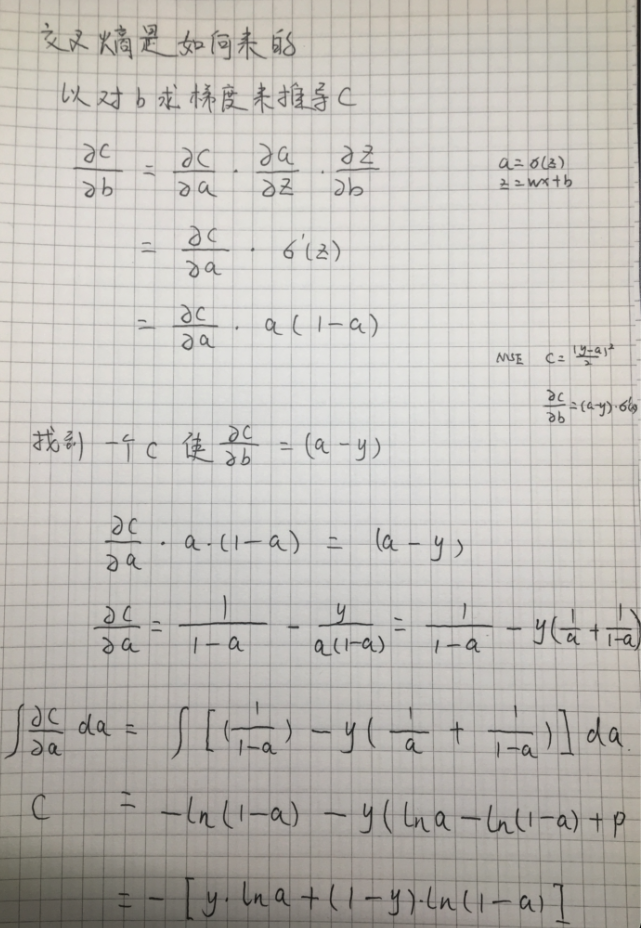 交叉熵是如何来的
以对b求梯度来推导C
∂C/∂b = ∂C/∂a · ∂a/∂z · ∂z/∂b
a = σ(z)
z = wx + b
= ∂C/∂a · σ'(z)
= ∂C/∂a · a(1-a)
MSE C = (y-a)²/2
∂C/∂b = (a-y)·σ'(z)
找到一个C 使 ∂C/∂b = (a-y)
∂C/∂a · a·(1-a) = (a-y)
∂C/∂a = 1/(1-a) - y/(a(1-a)) = 1/(1-a) - y(1/a + 1/(1-a))
∫ ∂C/∂a da = ∫ [(1/(1-a)) - y(1/a + 1/(1-a))] da.
C = -ln(1-a) - y(lna - ln(1-a) + p
= -[y·lna + (1-y)·ln(1-a)]